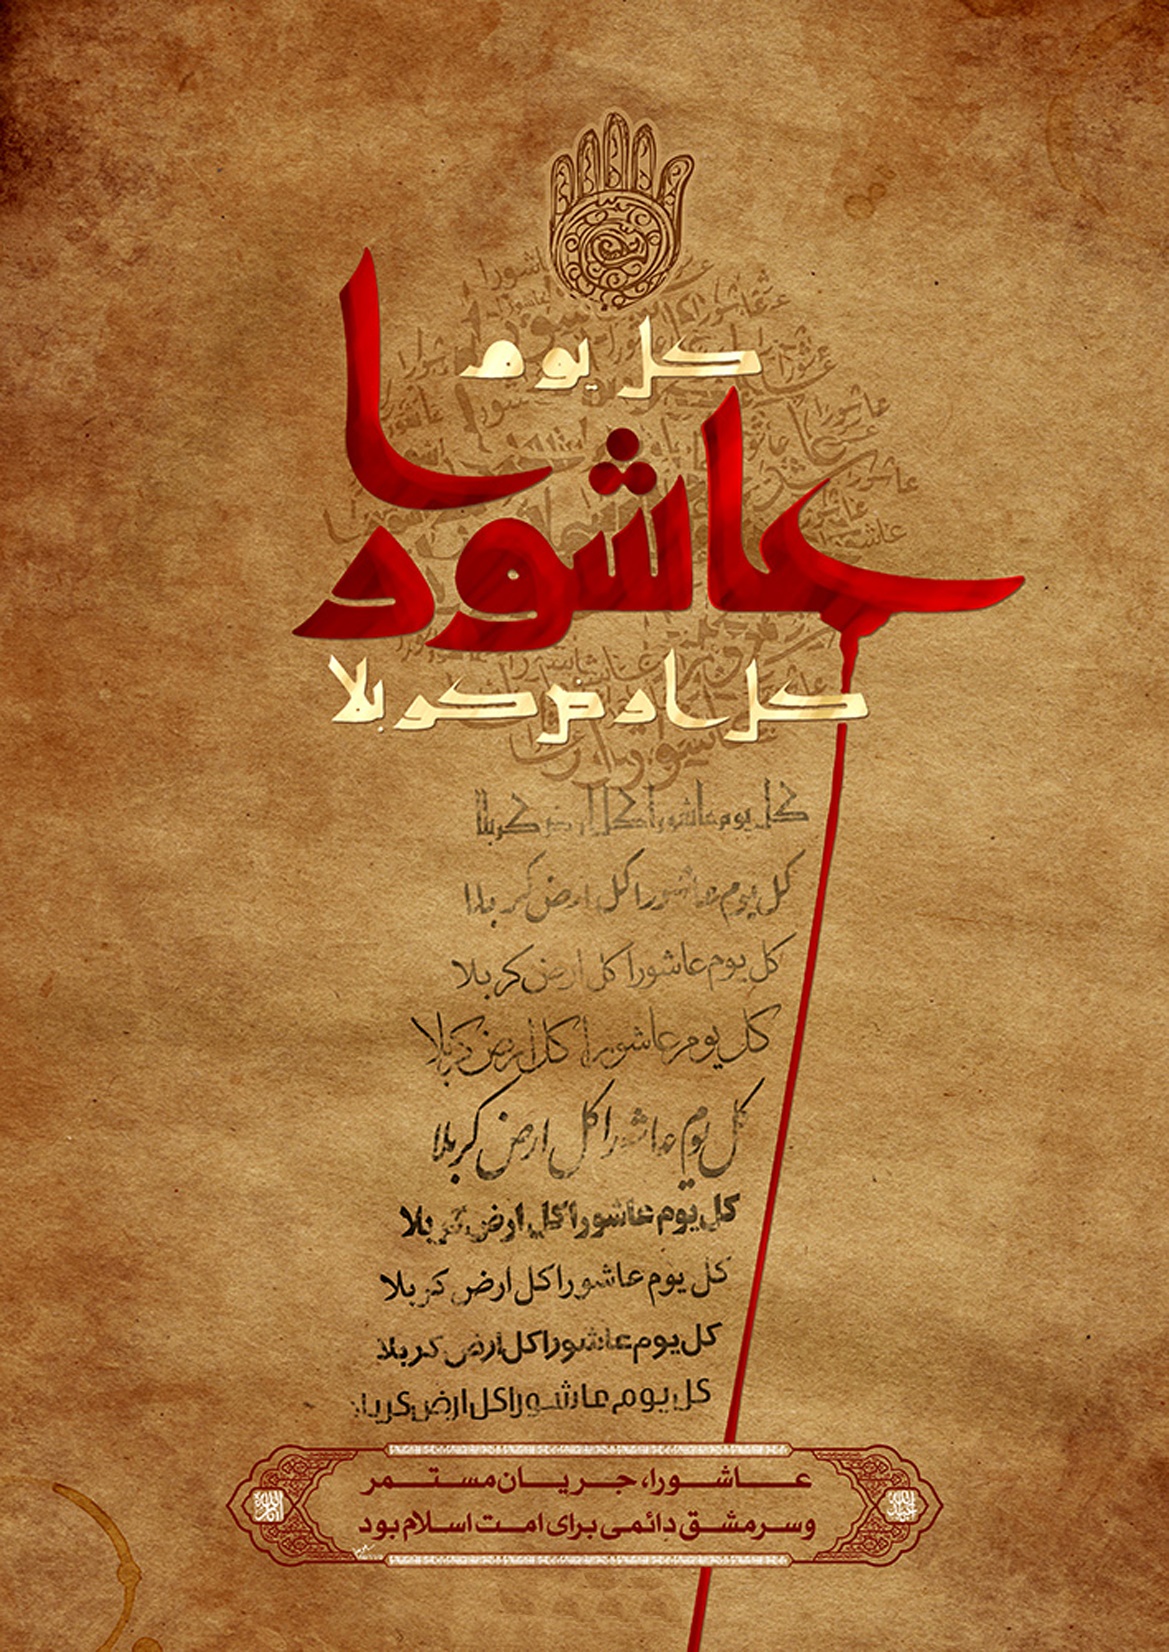 کل یوم
عاشورا
کل ارض کربلا
کل یوم عاشورا کل ارض کربلا
کل یوم عاشورا کل ارض کربلا
کل یوم عاشورا کل ارض کربلا
کل یوم عاشورا کل ارض کربلا
کل یوم عاشورا کل ارض کربلا
کل یوم عاشورا کل ارض کربلا
کل یوم عاشورا کل ارض کربلا
کل یوم عاشورا کل ارض کربلا
کل یوم عاشورا کل ارض کربلا
عاشورا، جریان مستمر
و سرمشق دائمی برای امت اسلام بود